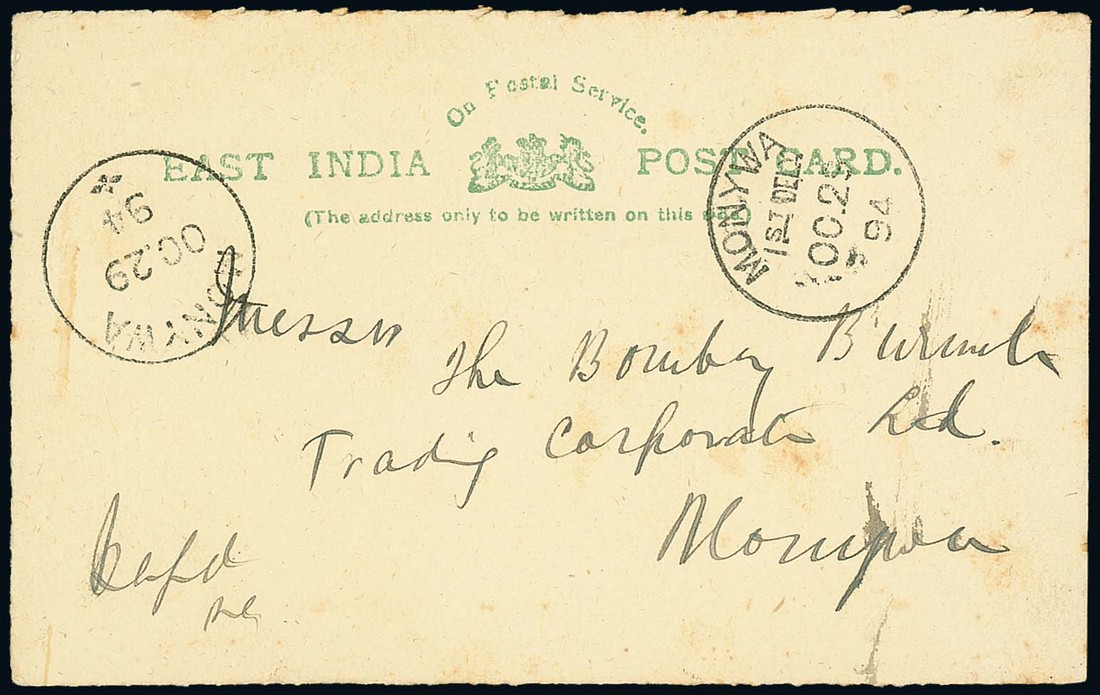 On Postal Service.
EAST INDIA POST CARD.
(The address only to be written on this side)
MONYWA
1ST DELY
OC.29
94
MONYWA
OC.29
94
Messrs
The Bombay Burmah
Trading Corporatn Ltd.
Monywa